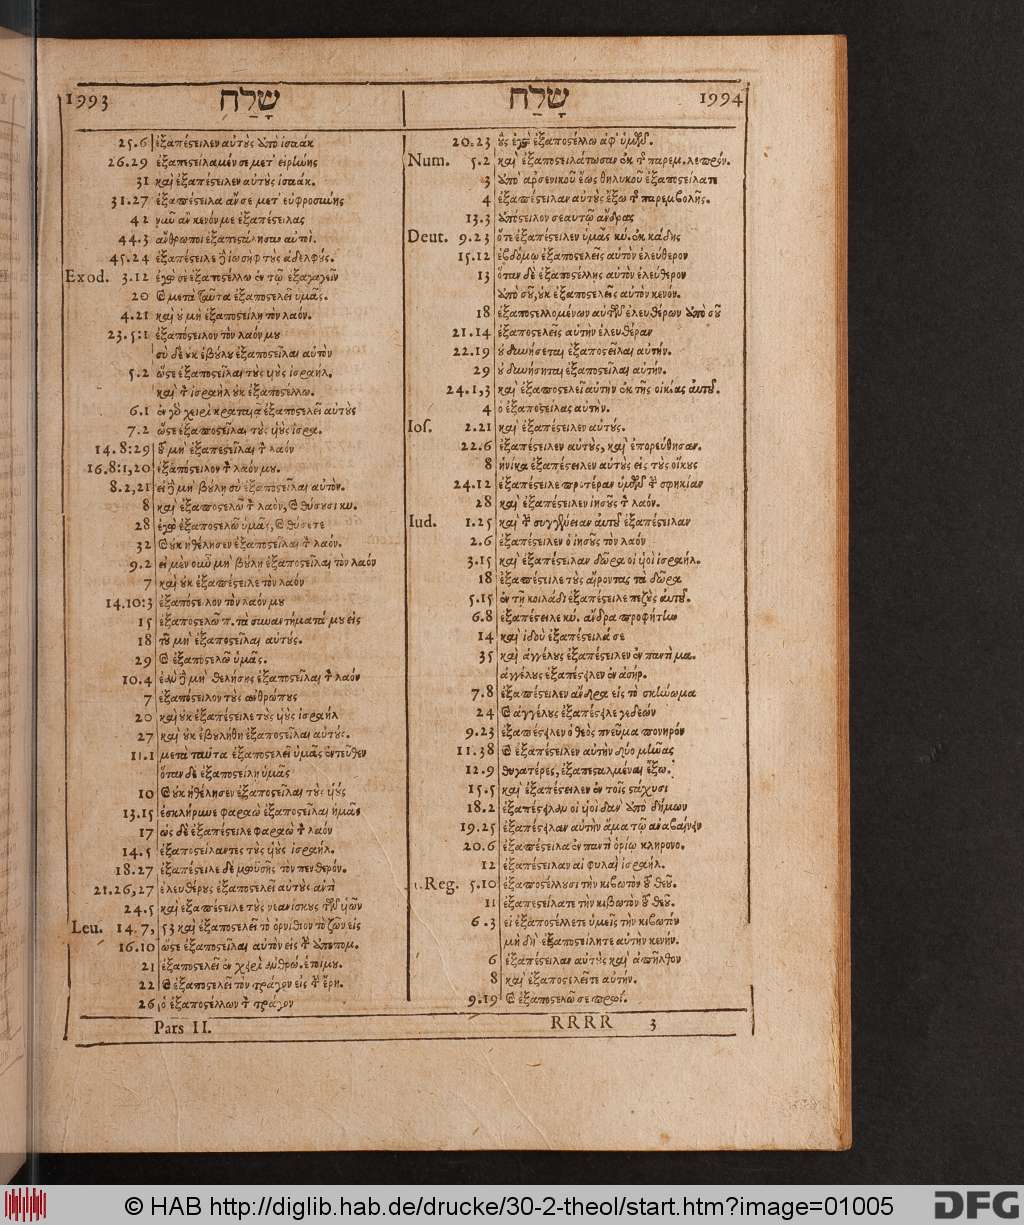 1993 שָׁלַח
25.6 ἐξαπέστειλεν αὐτοὺς ἀπὸ ἰσαάκ
26.29 ἐξαπεστείλαμέν σε μετ' εἰρήνης
31 καὶ ἐξαπέστειλεν αὐτοὺς ἰσαάκ.
31.27 ἐξαπέστειλα ἄν σε μετ' εὐφροσύνης
42 νῦν ἂν κενόν με ἐξαπέστειλας
44.3 ἄνθρωποι ἐξαπεστάλησαν αὐτοὶ.
45.24 ἐξαπέστειλε δὲ ἰωσὴφ τοὺς ἀδελφούς.
Exod. 3.12 ἐγὼ σὲ ἐξαποστέλλω ἐν τῷ ἐξαγαγεῖν
20 καὶ μετὰ ταῦτα ἐξαποστελεῖ ὑμᾶς.
4.21 καὶ οὐ μὴ ἐξαποστείλῃ τὸν λαόν.
23.5:1 ἐξαπόστειλον τὸν λαόν μου
σὺ δὲ οὐκ ἐβούλου ἐξαποστεῖλαι αὐτὸν
5.2 ὥστε ἐξαποστεῖλαι τοὺς υἱοὺς ἰσραήλ.
καὶ τὸν ἰσραὴλ οὐκ ἐξαποστέλλω.
6.1 ἐν γὰρ χειρὶ κραταιᾷ ἐξαποστελεῖ αὐτοὺς
7.2 ὥστε ἐξαποστεῖλαι τοὺς υἱοὺς ἰσρα.
14.8:29 τοῦ μὴ ἐξαποστεῖλαι τὸν λαόν
16.8:1,20 ἐξαπόστειλον τὸν λαόν μου.
8.2,21 εἰ δὲ μὴ βούλῃ σὺ ἐξαποστεῖλαι αὐτὸν.
8 καὶ ἐξαποστελῶ τὸν λαόν, καὶ θύσουσι κυ.
28 ἐγὼ ἐξαποστελῶ ὑμᾶς, καὶ θύσετε
32 καὶ οὐκ ἠθέλησεν ἐξαποστεῖλαι τὸν λαόν.
9.2 εἰ μὲν οὖν μὴ βούλῃ ἐξαποστεῖλαι τὸν λαόν
7 καὶ οὐκ ἐξαπέστειλε τὸν λαόν
14.10:3 ἐξαπόστειλον τὸν λαόν μου
15 ἐξαποστελῶ π. τὰ συναντήματά μου εἰς
18 τοῦ μὴ ἐξαποστεῖλαι αὐτούς.
29 καὶ ἐξαποστελῶ ὑμᾶς.
10.4 ἐὰν δὲ μὴ θελήσῃς ἐξαποστεῖλαι τὸν λαόν
7 ἐξαπόστειλον τοὺς ἀνθρώπους
20 καὶ οὐκ ἐξαπέστειλε τοὺς υἱοὺς ἰσραήλ
27 καὶ οὐκ ἐβουλήθη ἐξαποστεῖλαι αὐτούς.
11.1 μετὰ ταῦτα ἐξαποστελεῖ ὑμᾶς ἐντεῦθεν
ὅταν δὲ ἐξαποστείλῃ ὑμᾶς
10 καὶ οὐκ ἠθέλησεν ἐξαποστεῖλαι τοὺς υἱοὺς
13.15 ἐσκλήρωνε φαραὼ ἐξαποστεῖλαι ἡμᾶς
17 ὡς δὲ ἐξαπέστειλε φαραὼ τὸν λαόν
14.5 ἐξαποστείλαντες τοὺς υἱοὺς ἰσραήλ.
18.27 ἐξαπέστειλε δὲ μωϋσῆς τὸν πενθερόν.
21.26,27 ἐλευθέρους ἐξαποστελεῖ αὐτοὺς ἀντὶ
24.5 καὶ ἐξαπέστειλε τοὺς νεανίσκους τῶν υἱῶν
Leu. 14.7, 53 καὶ ἐξαποστελεῖ τὸ ὀρνίθιον τὸ ζῶν εἰς
16.10 ὥστε ἐξαποστεῖλαι αὐτὸν εἰς τὴν ἀποπομ.
21 ἐξαποστελεῖ ἐν χειρὶ ἀνθρώ. ἑτοίμου.
22 καὶ ἐξαποστελεῖ τὸν τράγον εἰς τὴν ἔρη.
26 ὁ ἐξαποστέλλων τὸν τράγον
Pars II.
שָׁלַח 1994
20.23 οὓς ἐγὼ ἐξαποστέλλω ἀφ' ὑμῶν.
Num. 5.2 καὶ ἐξαποστειλάτωσαν ἐκ τῆς παρεμ. λεπρόν.
3 ἀπὸ ἀρσενικοῦ ἕως θηλυκοῦ ἐξαποστείλατε
4 ἐξαπέστειλαν αὐτοὺς ἔξω τῆς παρεμβολῆς.
13.3 ἀπόστειλον σεαυτῷ ἄνδρας
Deut. 9.23 ὅτε ἐξαπέστειλεν ὑμᾶς κύ. ἐκ κάδης
15.12 ἑβδόμῳ ἐξαποστελεῖς αὐτὸν ἐλεύθερον
13 ὅταν δὲ ἐξαποστέλλῃς αὐτὸν ἐλεύθερον
ἀπὸ σοῦ, οὐκ ἐξαποστελεῖς αὐτὸν κενόν.
18 ἐξαποστελλομένων αὐτῶν ἐλευθέρων ἀπὸ σοῦ
21.14 ἐξαποστελεῖς αὐτὴν ἐλευθέραν
22.19 οὐ δυνήσεται ἐξαποστεῖλαι αὐτήν.
29 οὐ δυνήσηται ἐξαποστεῖλαι αὐτήν.
24.1,3 καὶ ἐξαποστελεῖ αὐτὴν ἐκ τῆς οἰκίας αὐτοῦ.
4 ὁ ἐξαποστείλας αὐτὴν.
Ios. 2.21 καὶ ἐξαπέστειλεν αὐτούς.
22.6 ἐξαπέστειλεν αὐτοὺς, καὶ ἐπορεύθησαν.
8 ἡνίκα ἐξαπέστειλεν αὐτοὺς εἰς τοὺς οἴκους
24.12 ἐξαπέστειλε προτέραν ὑμῶν τὴν σφηκίαν
28 καὶ ἐξαπέστειλεν ἰησοῦς τὸν λαόν.
Iud. 1.25 καὶ τὴν συγγένειαν αὐτοῦ ἐξαπέστειλαν
2.6 ἐξαπέστειλεν ὁ ἰησοῦς τὸν λαὸν
3.15 καὶ ἐξαπέστειλαν δῶρα οἱ υἱοὶ ἰσραήλ.
18 ἐξαπέστειλε τοὺς αἴροντας τὰ δῶρα
5.15 ἐν τῇ κοιλάδι ἐξαπέστειλε πεζοὺς αὐτοῦ.
6.8 ἐξαπέστειλε κύ. ἄνδρα προφήτην
14 καὶ ἰδοὺ ἐξαπέστειλά σε
35 καὶ ἀγγέλους ἐξαπέστειλεν ἐν παντὶ μα.
ἀγγέλους ἐξαπέστειλεν ἐν ἀσήρ.
7.8 ἐξαπέστειλεν ἄνδρα εἰς τὸ σκήνωμα
24 καὶ ἀγγέλους ἐξαπέστειλε γεδεών
9.23 ἐξαπέστειλεν ὁ θεὸς πνεῦμα πονηρόν
11.38 καὶ ἐξαπέστειλεν αὐτὴν δύο μῆνας
12.9 θυγατέρες, ἐξαπεσταλμέναι ἔξω.
15.5 καὶ ἐξαπέστειλεν ἐν τοῖς στάχυσι
18.2 ἐξαπέστειλαν οἱ υἱοὶ δὰν ἀπὸ δήμων
19.25 ἐξαπέστειλαν αὐτὴν ἅμα τῷ ἀναβαίνειν
20.6 ἐξαπέστειλα ἐν παντὶ ὁρίῳ κληρονο.
12 ἐξαπέστειλαν αἱ φυλαὶ ἰσραήλ.
1. Reg. 5.10 ἐξαποστέλλουσι τὴν κιβωτὸν τοῦ θεοῦ.
11 ἐξαποστείλατε τὴν κιβωτὸν τοῦ θεοῦ.
6.3 εἰ ἐξαποστέλλετε ὑμεῖς τὴν κιβωτὸν
μὴ δὴ ἐξαποστείλητε αὐτὴν κενήν.
6 ἐξαπέστειλαν αὐτοὺς καὶ ἀπῆλθον
8 καὶ ἐξαποστελεῖτε αὐτήν.
9.19 καὶ ἐξαποστελῶ σε πρωΐ.
RRRR 3
© HAB http://diglib.hab.de/drucke/30-2-theol/start.htm?image=01005
DFG